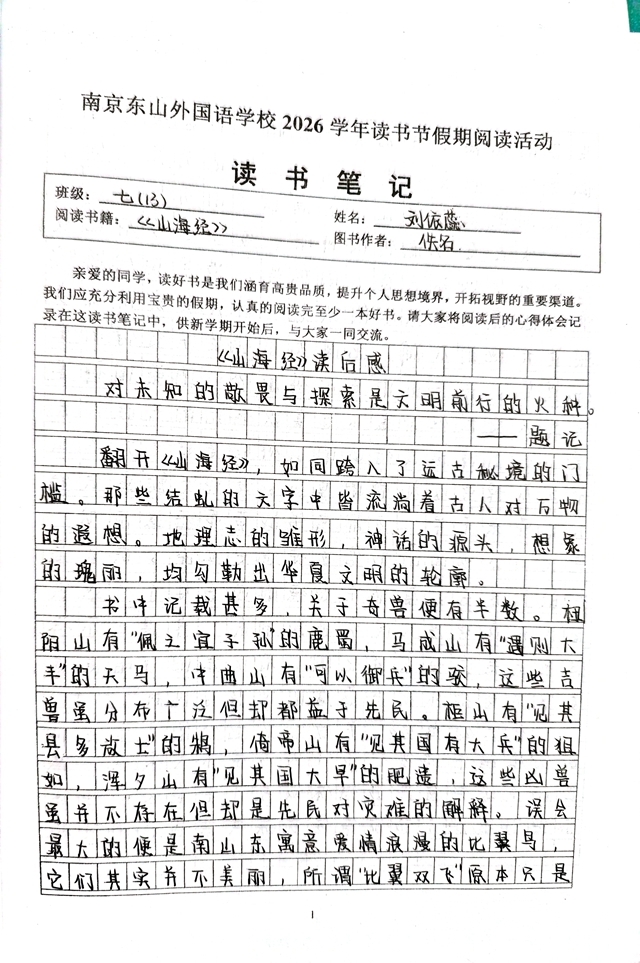 南京东山外国语学校 2026 学年读书节假期阅读活动
读 书 笔 记
班级： 七(13) 姓名： 刘依蕊
阅读书籍： 《山海经》 图书作者： 佚名
亲爱的同学，读好书是我们涵育高贵品质，提升个人思想境界，开拓视野的重要渠道。
我们应充分利用宝贵的假期，认真的阅读完至少一本好书。请大家将阅读后的心得体会记
录在这读书笔记中，供新学期开始后，与大家一同交流。
《山海经》读后感
对未知的敬畏与探索是文明前行的火种。
——题记
翻开《山海经》，如同跨入了远古秘境的门
槛。那些结虬的文字中皆流淌着古人对万物
的遐想。地理志的雏形，神话的源头，想象
的瑰丽，均勾勒出华夏文明的轮廓。
书中记载甚多，关于奇兽便有半数。杻
阳山有“佩之宜子孙”的鹿蜀，马成山有“遇则大
丰”的天马，中曲山有“可以御兵”的驳，这些吉
兽虽分布广泛但却都益于先民。柜山有“见其
县多放士”的鴸，倚帝山有“见其国有大兵”的狙
如，浑夕山有“见其国大旱”的肥遗，这些凶兽
虽并不存在但却是先民对灾难的解释。误会
最大的便是南山东寓意爱情浪漫的比翼鸟，
它们其实并不美丽，所谓“比翼双飞”原本只是
1